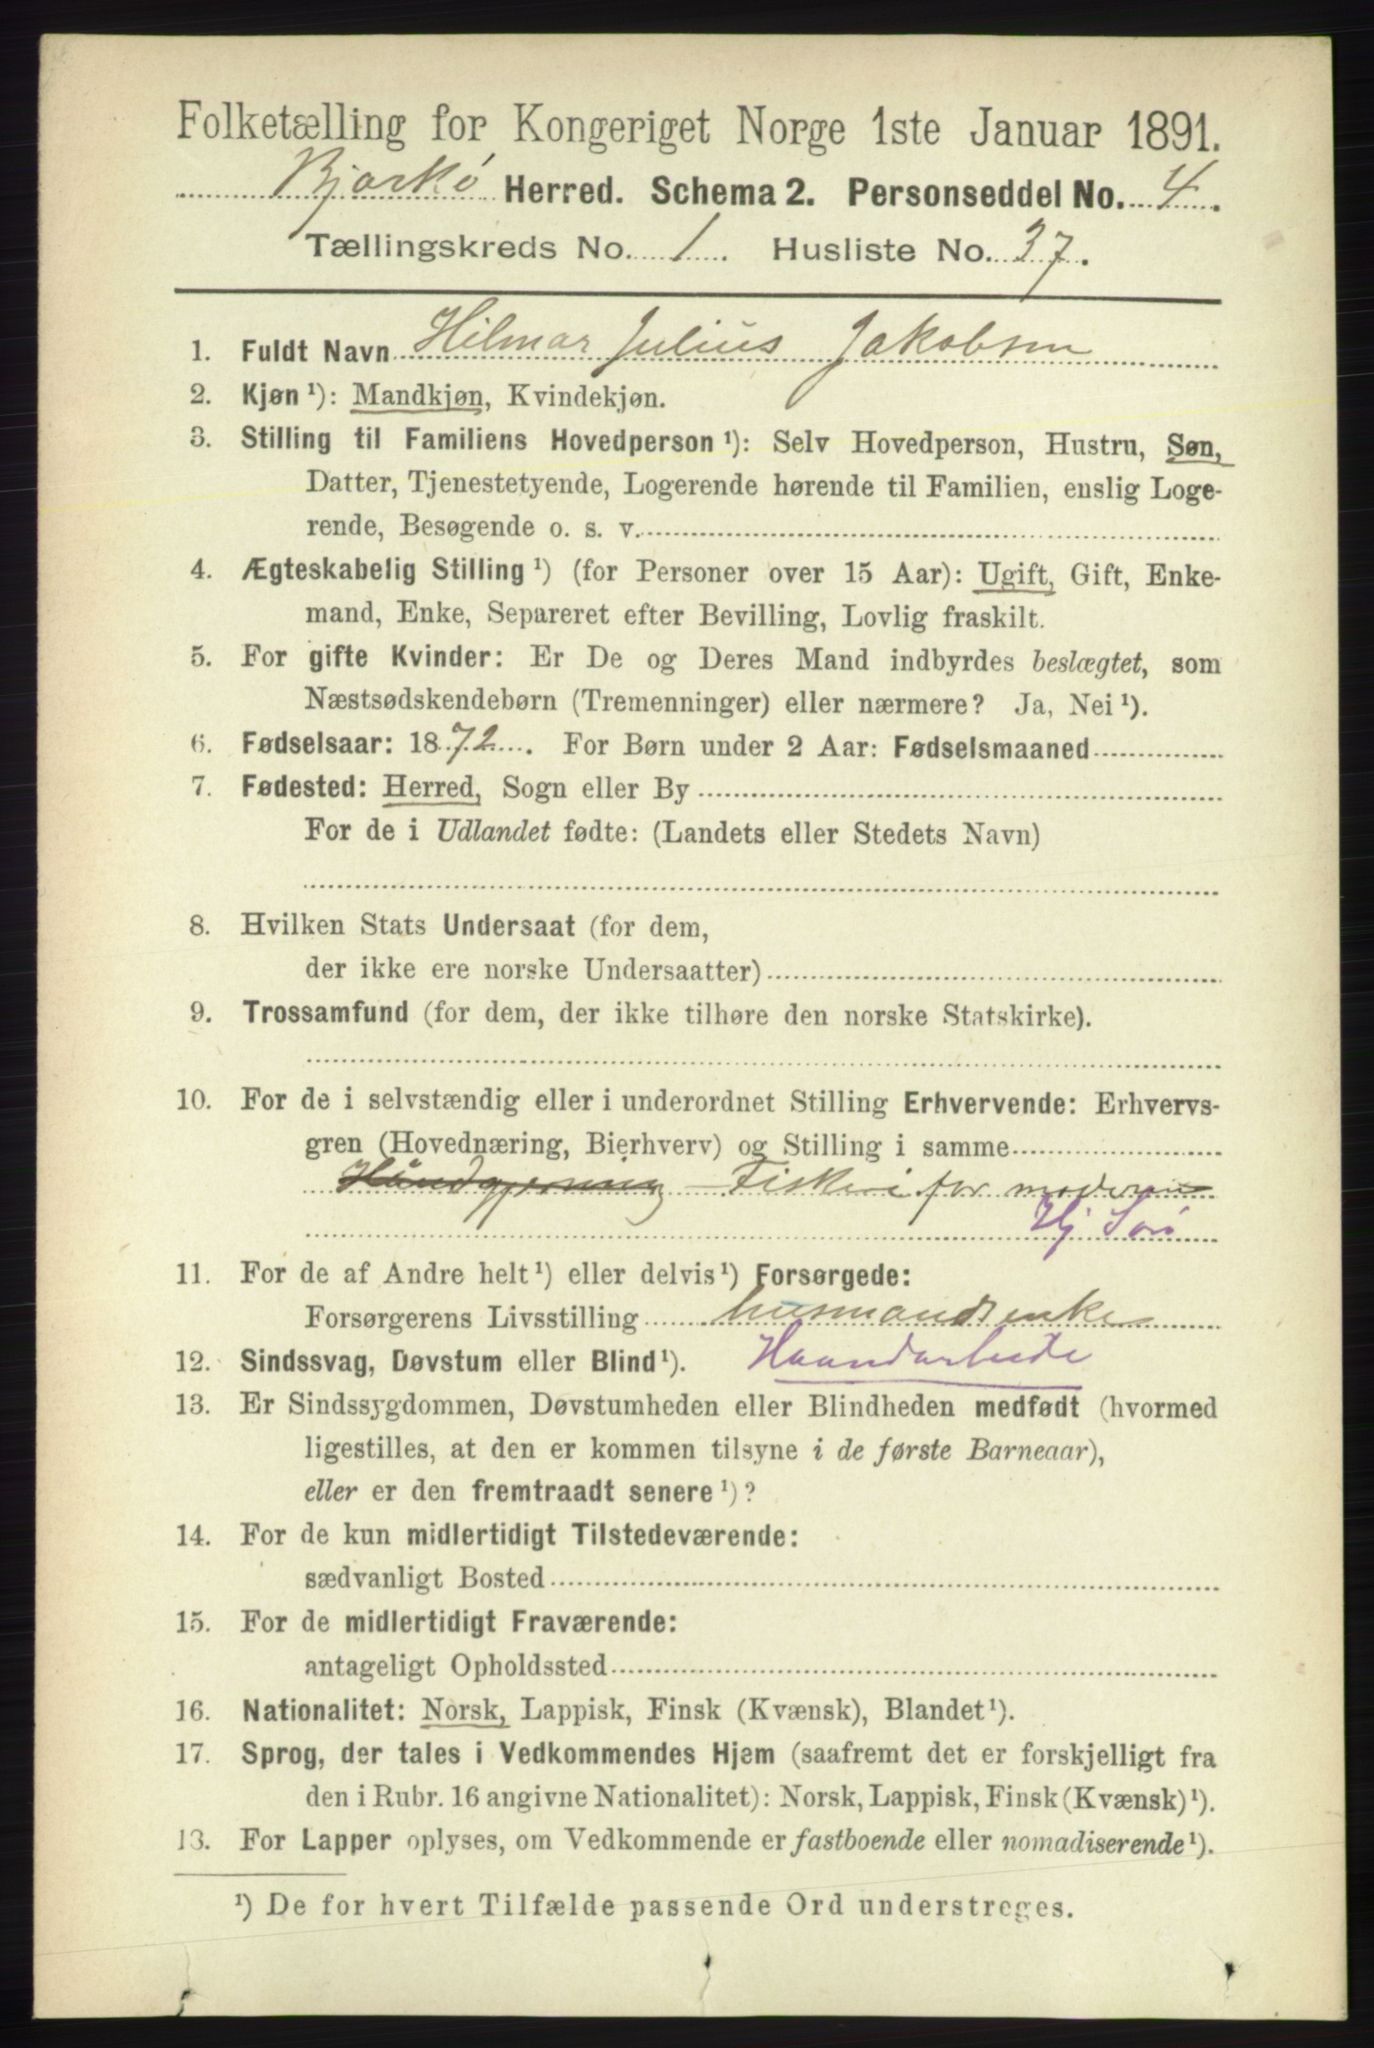 Folketælling for Kongeriget Norge 1ste Januar 1891.
Bjarkö Herred. Schema 2. Personseddel No. 4.
Tællingskreds No. 1. Husliste No. 37.
1. Fuldt Navn Hilmar Julius Jakobsen
2. Kjøn ¹): Mandkjøn, Kvindekjøn.
3. Stilling til Familiens Hovedperson ¹): Selv Hovedperson, Hustru, Søn,
Datter, Tjenestetyende, Logerende hørende til Familien, enslig Loge-
rende, Besøgende o. s. v.
4. Ægteskabelig Stilling ¹) (for Personer over 15 Aar): Ugift, Gift, Enke-
mand, Enke, Separeret efter Bevilling, Lovlig fraskilt.
5. For gifte Kvinder: Er De og Deres Mand indbyrdes beslægtet, som
Næstsødskendebørn (Tremenninger) eller nærmere? Ja, Nei ¹).
6. Fødselsaar: 1872. For Børn under 2 Aar: Fødselsmaaned
7. Fødested: Herred, Sogn eller By
For de i Udlandet fødte: (Landets eller Stedets Navn)
8. Hvilken Stats Undersaat (for dem,
der ikke ere norske Undersaatter)
9. Trossamfund (for dem, der ikke tilhøre den norske Statskirke).
10. For de i selvstændig eller i underordnet Stilling Erhvervende: Erhvervs-
gren (Hovednæring, Bierhverv) og Stilling i samme
Håndgjerning – Fiskeri for moderen
Hj
11. For de af Andre helt ¹) eller delvis ¹) Forsørgede:
Forsørgerens Livsstilling husmandsenke
12. Sindssvag, Døvstum eller Blind ¹). Haandarbeide
13. Er Sindssygdommen, Døvstumheden eller Blindheden medfødt (hvormed
ligestilles, at den er kommen tilsyne i de første Barneaar),
eller er den fremtraadt senere ¹)?
14. For de kun midlertidigt Tilstedeværende:
sædvanligt Bosted
15. For de midlertidigt Fraværende:
antageligt Opholdssted
16. Nationalitet: Norsk, Lappisk, Finsk (Kvænsk), Blandet ¹).
17. Sprog, der tales i Vedkommendes Hjem (saafremt det er forskjelligt fra
den i Rubr. 16 angivne Nationalitet): Norsk, Lappisk, Finsk (Kvænsk) ¹).
13. For Lapper oplyses, om Vedkommende er fastboende eller nomadiserende ¹).
¹) De for hvert Tilfælde passende Ord understreges.